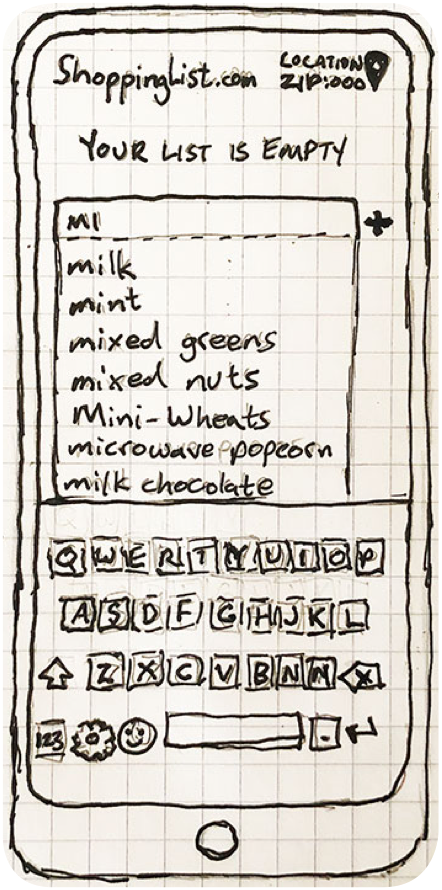 ShoppingList.com
LOCATION
ZIP:000
YOUR LIST IS EMPTY
MI
milk
mint
mixed greens
mixed nuts
Mini-Wheats
microwave popcorn
milk chocolate
Q W E R T Y U I O P
A S D F G H J K L
Z X C V B N M X
123 .